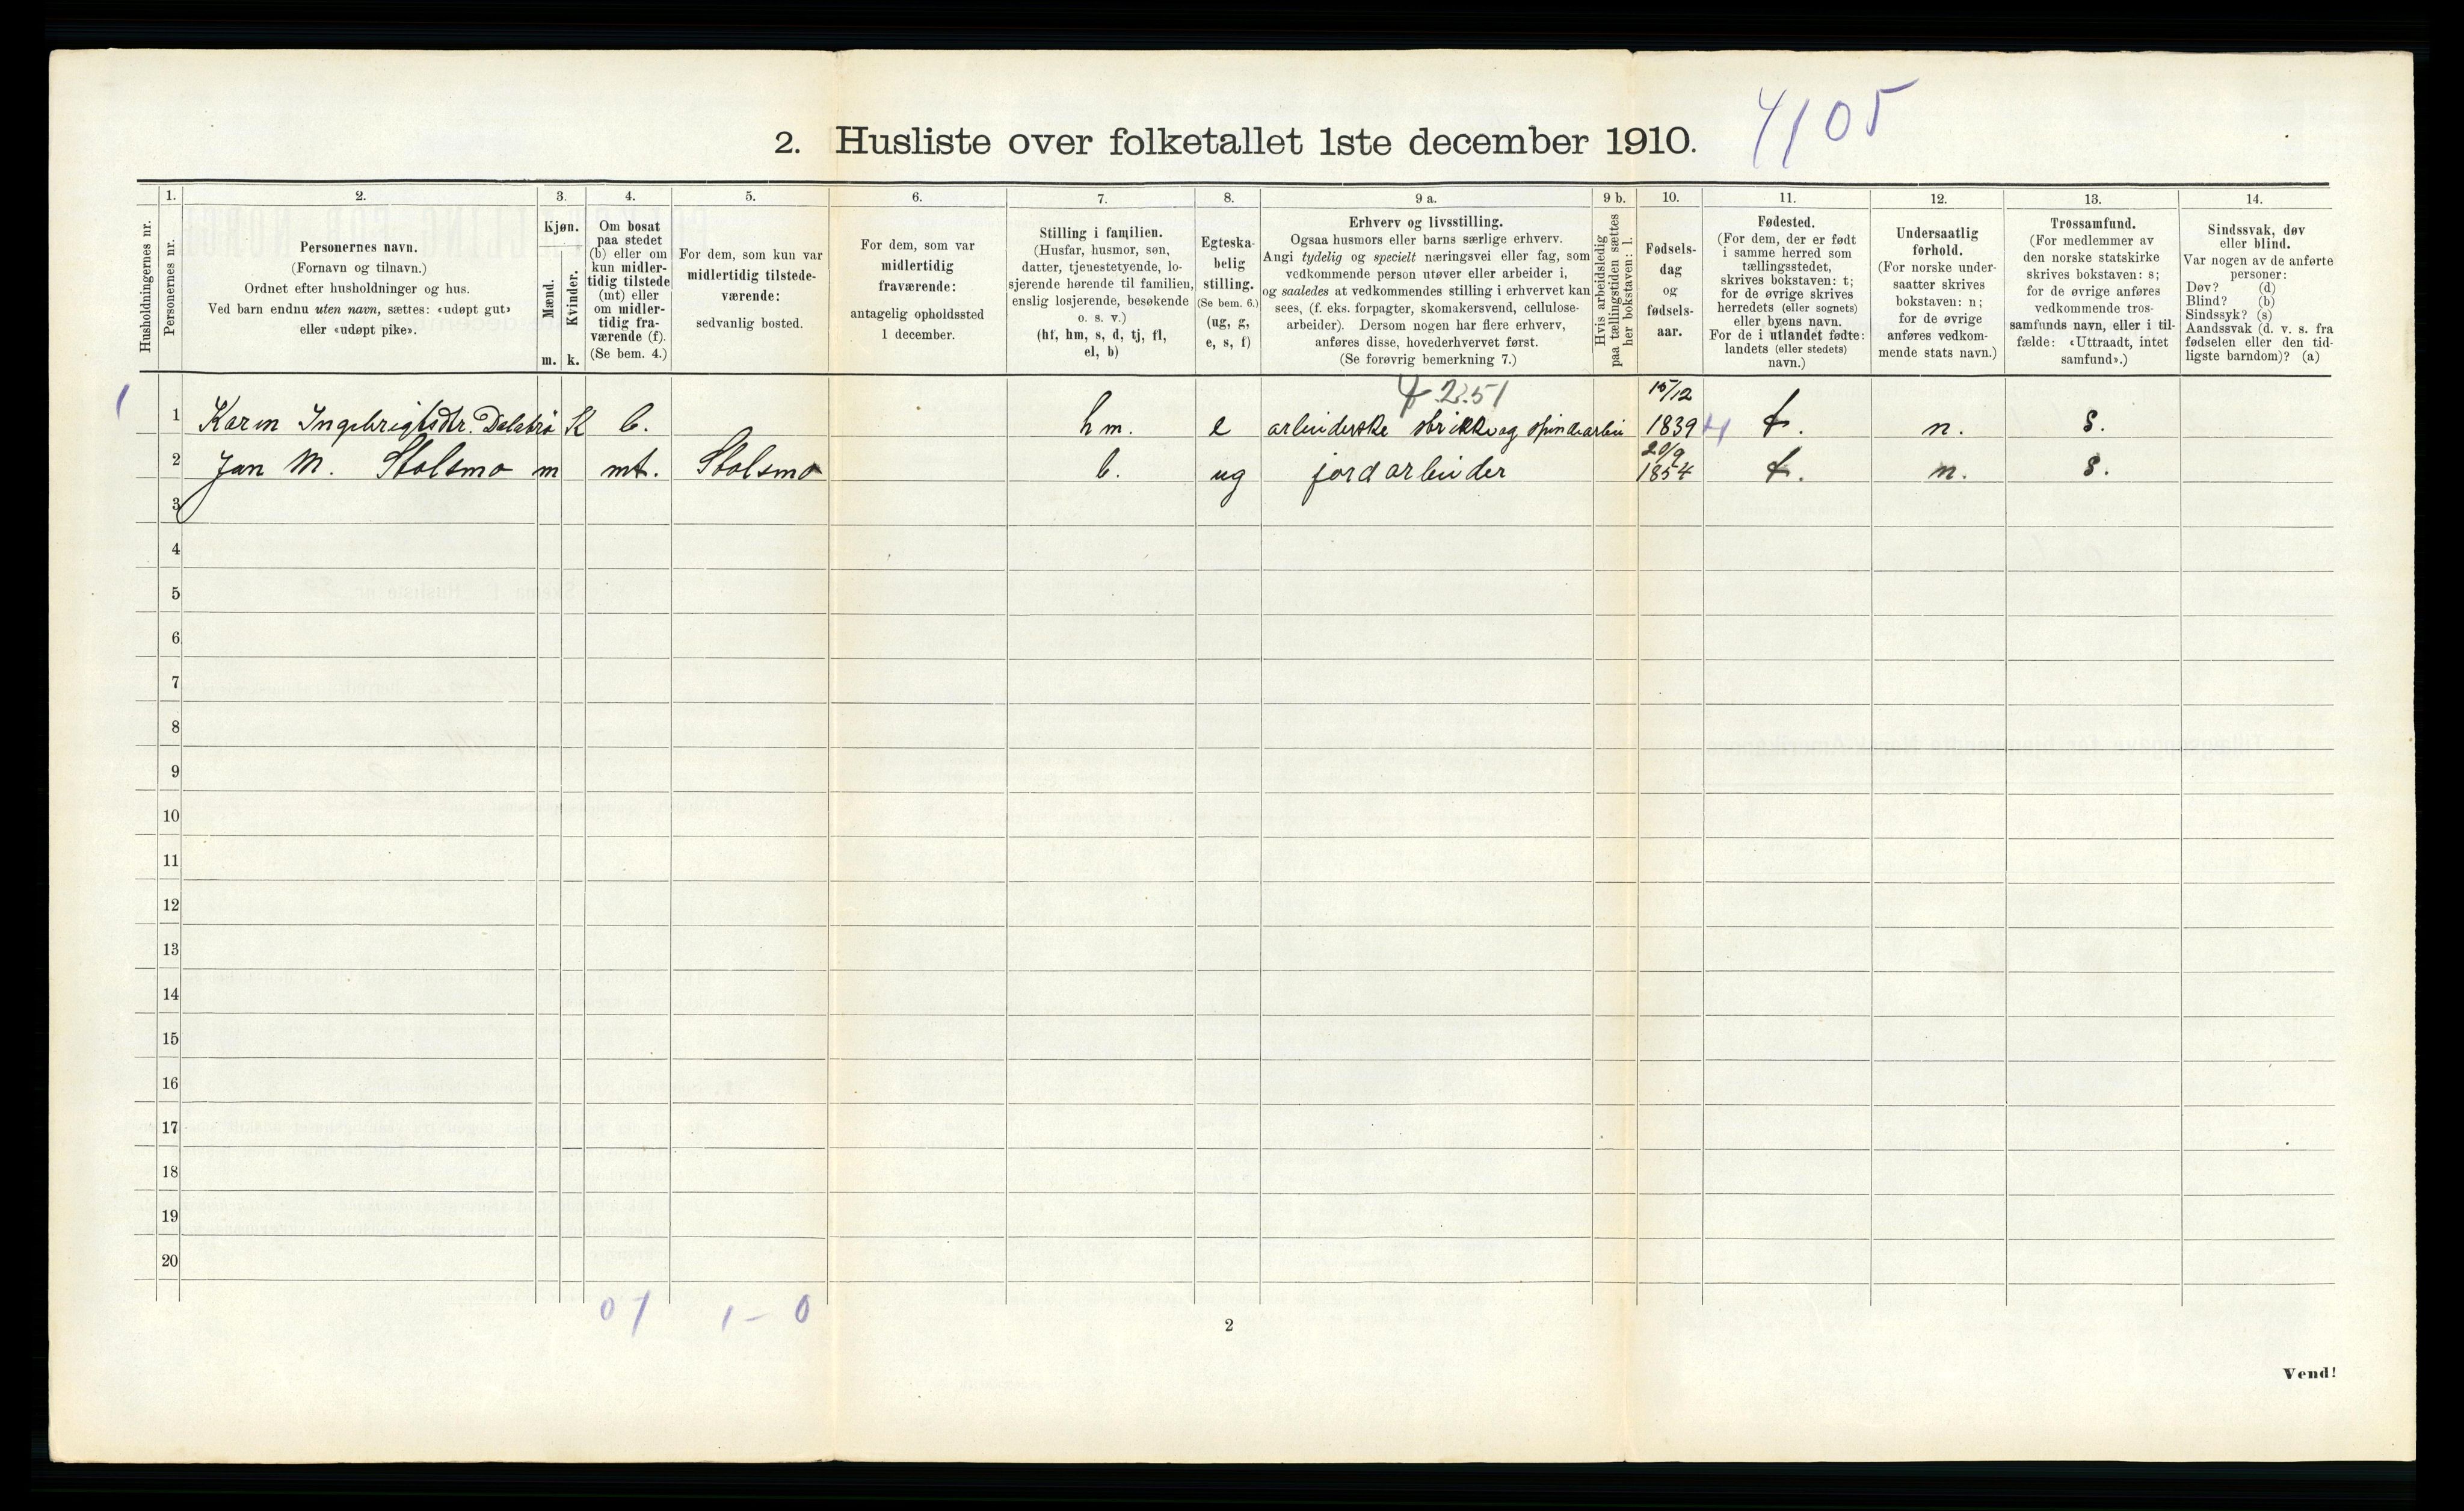 4105
2. Husliste over folketallet 1ste december 1910.
Husholdningernes nr.
1.
Personernes nr.
2.
Personernes navn.
(Fornavn og tilnavn.)
Ordnet efter husholdninger og hus.
Ved barn endnu uten navn, sættes: «udøpt gut»
eller «udøpt pike».
3.
Kjøn.
Mænd.
Kvinder.
m. k.
4.
Om bosat
paa stedet
(b) eller om
kun midler-
tidig tilstede
(mt) eller
om midler-
tidig fra-
værende (f).
(Se bem. 4.)
5.
For dem, som kun var
midlertidig tilstede-
værende:
sedvanlig bosted.
6.
For dem, som var
midlertidig
fraværende:
antagelig opholdssted
1 december.
7.
Stilling i familien.
(Husfar, husmor, søn,
datter, tjenestetyende, lo-
sjerende hørende til familien,
enslig losjerende, besøkende
o. s. v.)
(hf, hm, s, d, tj, fl,
el, b)
8.
Egteska-
belig
stilling.
(Se bem. 6.)
(ug, g,
e, s, f)
9 a.
Erhverv og livsstilling.
Ogsaa husmors eller barns særlige erhverv.
Angi tydelig og specielt næringsvei eller fag, som
vedkommende person utøver eller arbeider i,
og saaledes at vedkommendes stilling i erhvervet kan
sees, (f. eks. forpagter, skomakersvend, cellulose-
arbeider). Dersom nogen har flere erhverv,
anføres disse, hovederhvervet først.
(Se forøvrig bemerkning 7.)
9 b.
Hvis arbeidsledig
paa tællingstiden sættes
her bokstaven: l.
10.
Fødsels-
dag
og
fødsels-
aar.
11.
Fødested.
(For dem, der er født
i samme herred som
tællingsstedet,
skrives bokstaven: t;
for de øvrige skrives
herredets (eller sognets)
eller byens navn.
For de i utlandet fødte:
landets (eller stedets)
navn.)
12.
Undersaatlig
forhold.
(For norske under-
saatter skrives
bokstaven: n;
for de øvrige
anføres vedkom-
mende stats navn.)
13.
Trossamfund.
(For medlemmer av
den norske statskirke
skrives bokstaven: s;
for de øvrige anføres
vedkommende tros-
samfunds navn, eller i til-
fælde: «Uttraadt, intet
samfund».)
14.
Sindssvak, døv
eller blind.
Var nogen av de anførte
personer:
Døv? (d)
Blind? (b)
Sindssyk? (s)
Aandssvak (d. v. s. fra
fødselen eller den tid-
ligste barndom)? (a)
2.51 15/12
1 1 Karen Ingebrigtsdtr. K b. hm. e arbeiderske strikke og spindearbei 1839 4 t. n. s.
20/9
2 Jan M. Stolsmo m mt. Stolsmo b. ug jordarbeider 1854 t. n. s.
3
4
5
6
7
8
9
10
11
12
13
14
15
16
17
18
19
20
01 1-0
2
Vend!